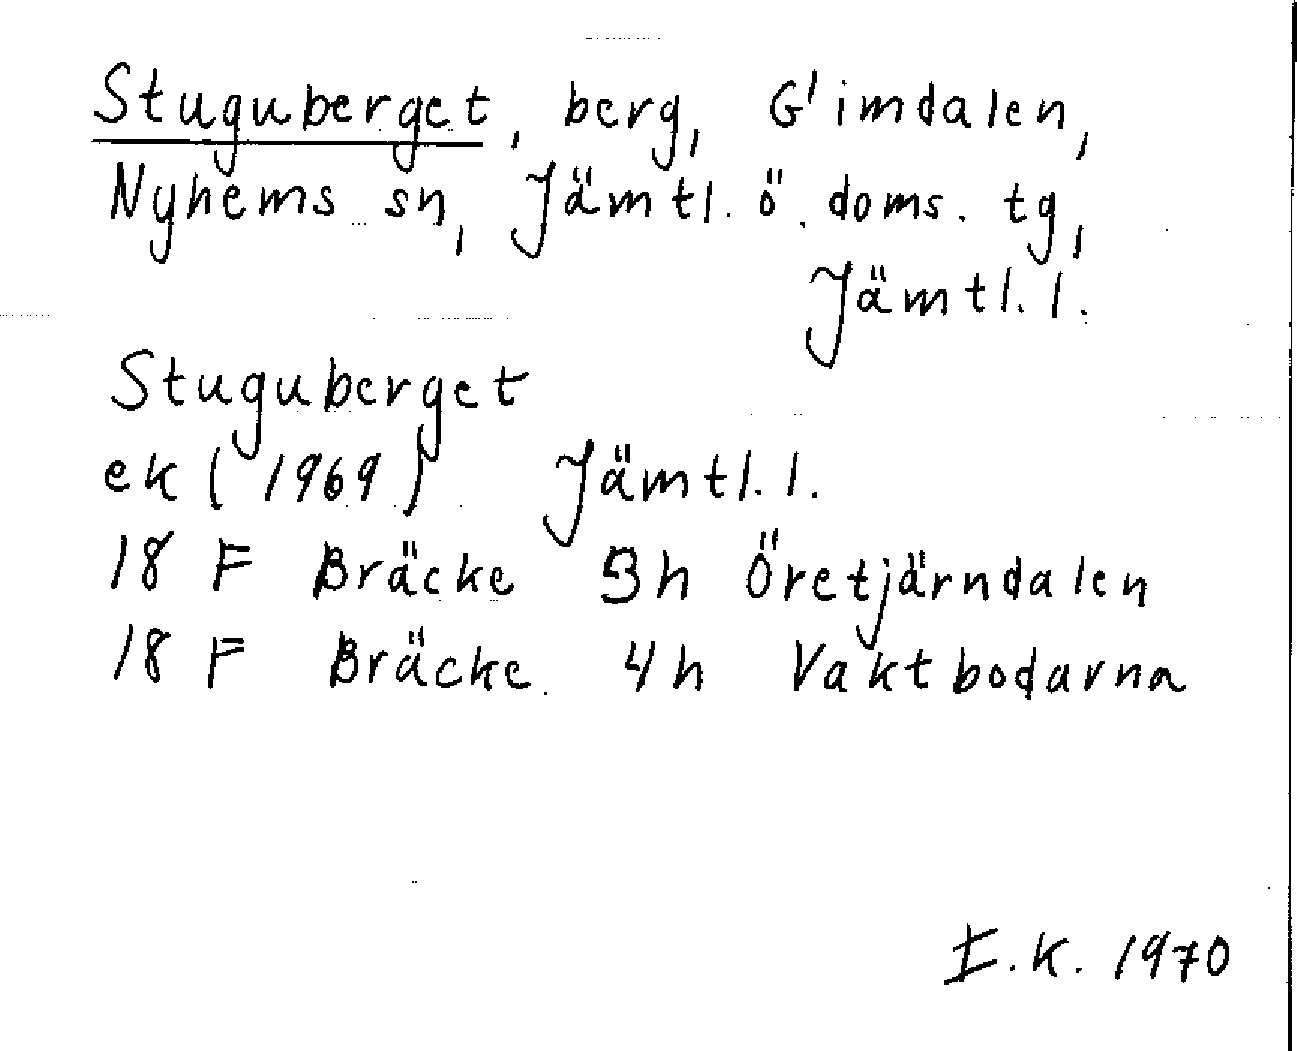 Stuguberget, berg, Gimdalen,
Nyhems sn, Jämtl. ö. doms. tg,
Jämtl. l.
Stuguberget
ek (1969) Jämtl. l.
18 F Bräcke 3h Öretjärndalen
18 F Bräcke 4h Vaktbodarna
E.K. 1970